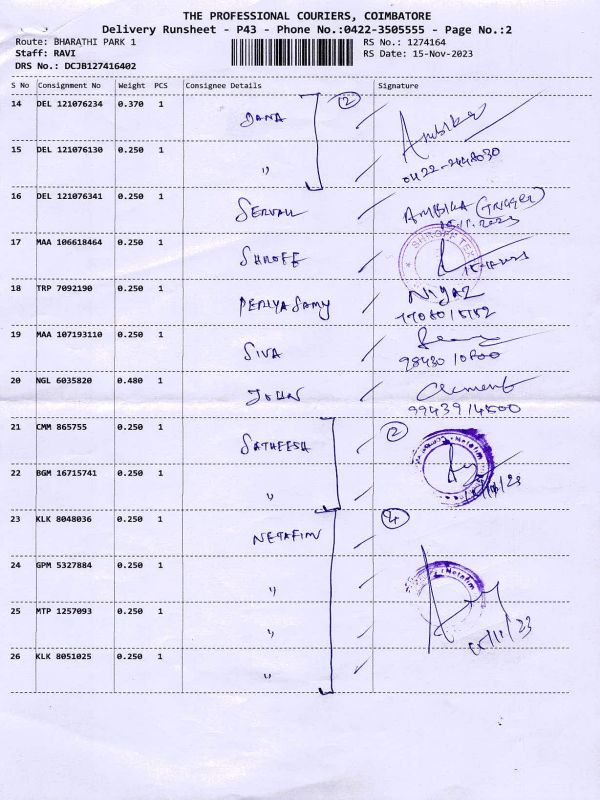 THE PROFESSIONAL COURIERS, COIMBATORE
Delivery Runsheet - P43 - Phone No.:0422-3505555 - Page No.:2
Route: BHARATHI PARK 1 RS No.: 1274164
Staff: RAVI RS Date: 15-Nov-2023
DRS No.: DCJB127416402
S No Consignment No Weight PCS Consignee Details Signature
14 DEL 121076234 0.370 1 DANA 2 Ambika
15 DEL 121076130 0.250 1 "
0422-2448030
16 DEL 121076341 0.250 1 SERVALL AMBIKA (TRIGGER)
15.11.2023
17 MAA 106618464 0.250 1 SHROFF SHROFF TEX
18 TRP 7092190 0.250 1 PERIYASAMY NIYAZ
19 MAA 107193110 0.250 1 SIVA
98430 10800
20 NGL 6035820 0.480 1 JOHN Clement
99439 14500
21 CMM 865755 0.250 1 SATHEESH 2 Netafim
22 BGM 16715741 0.250 1 "
23 KLK 8048036 0.250 1 NETAFIM 4
24 GPM 5327884 0.250 1 " Netafim
25 MTP 1257093 0.250 1 " 15/11/23
26 KLK 8051025 0.250 1 "